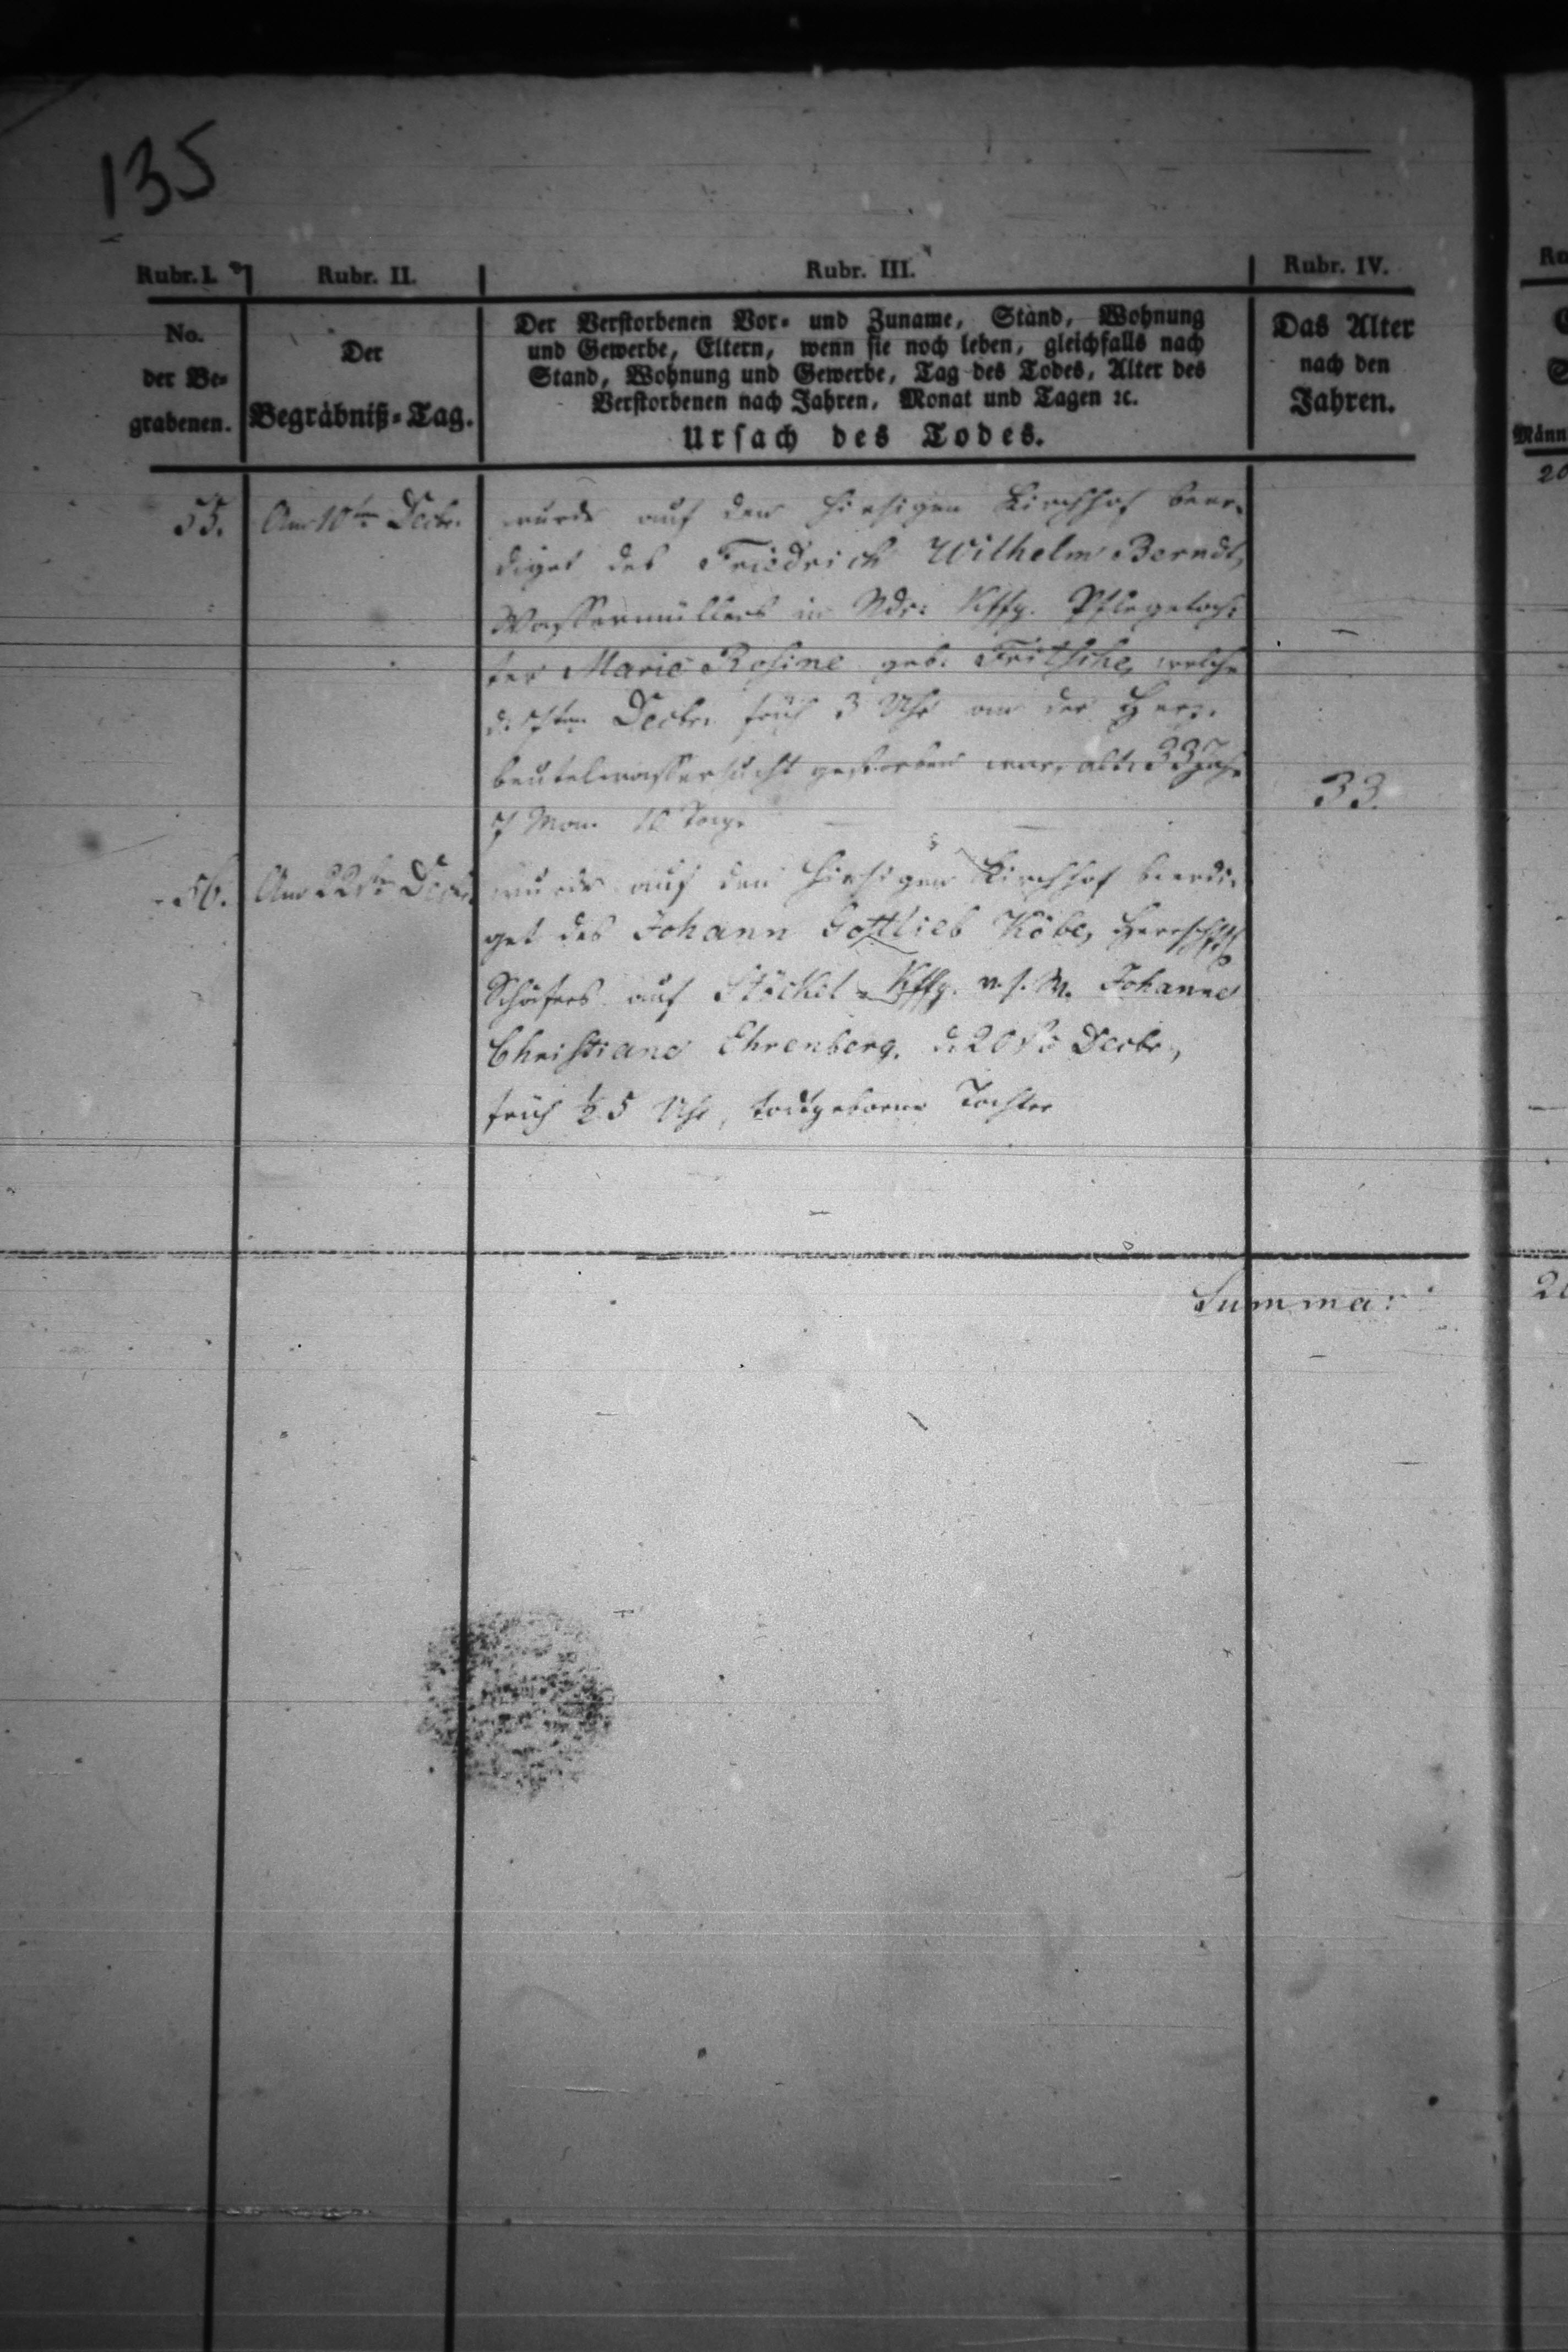 135
Rubr. I.
Rubr. II.
Rubr. III.
Rubr. IV.
No.
der Be-
grabenen.
Der
Begräbniß-Tag.
Der Verstorbenen Vor- und Zuname, Stand, Wohnung
und Gewerbe, Eltern, wenn sie noch leben, gleichfalls nach
Stand, Wohnung und Gewerbe, Tag des Todes, Alter des
Verstorbenen nach Jahren, Monat und Tagen ꝛc.
Ursach des Todes.
Das Alter
nach den
Jahren.
Männ
55.
Am 10ten Decbr.
wurde auf den hiesigen Kirchhof beer-
diget des Friedrich Wilhelm Berndt,
Wassermüllers in Ndr: Kffg. Pflegetoch-
ter Marie Rosine geb. Fritsche, welche
d. 7ten Decbr. früh 3 Uhr an der Herz-
beutelwassersucht gestorben war, alt: 33 Jahr
7 Mon. Tage
33.
56.
Am 22ten Decbr.
wurde auf den hiesigen Kirchhof beerdi-
get des Johann Gottlieb Köbe, herrschftl.
Schäfers auf Stöckel-Kffg. u. s. W. Johanne
Christiane Ehrenberg, d. 20ste Decbr,
früh ½ 5 Uhr, todtgeborne Tochter
Summa: